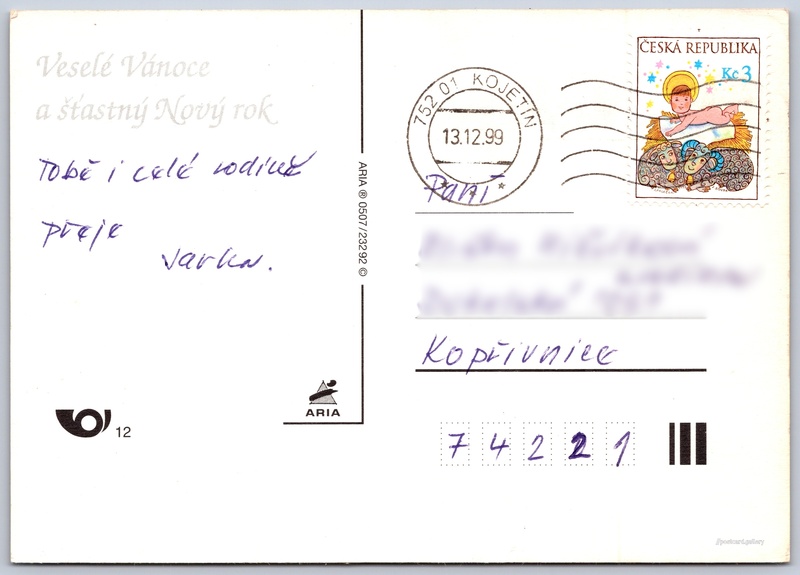 Veselé Vánoce
a šťastný Nový rok
Tobě i celé rodině
přeje
Jarka.
12
ARIA ® 0507/23292 ©
ARIA
752 01 KOJETÍN
13.12.99
ČESKÁ REPUBLIKA
Kč 3
Paní
Kopřivnice
74221
//postcard.gallery